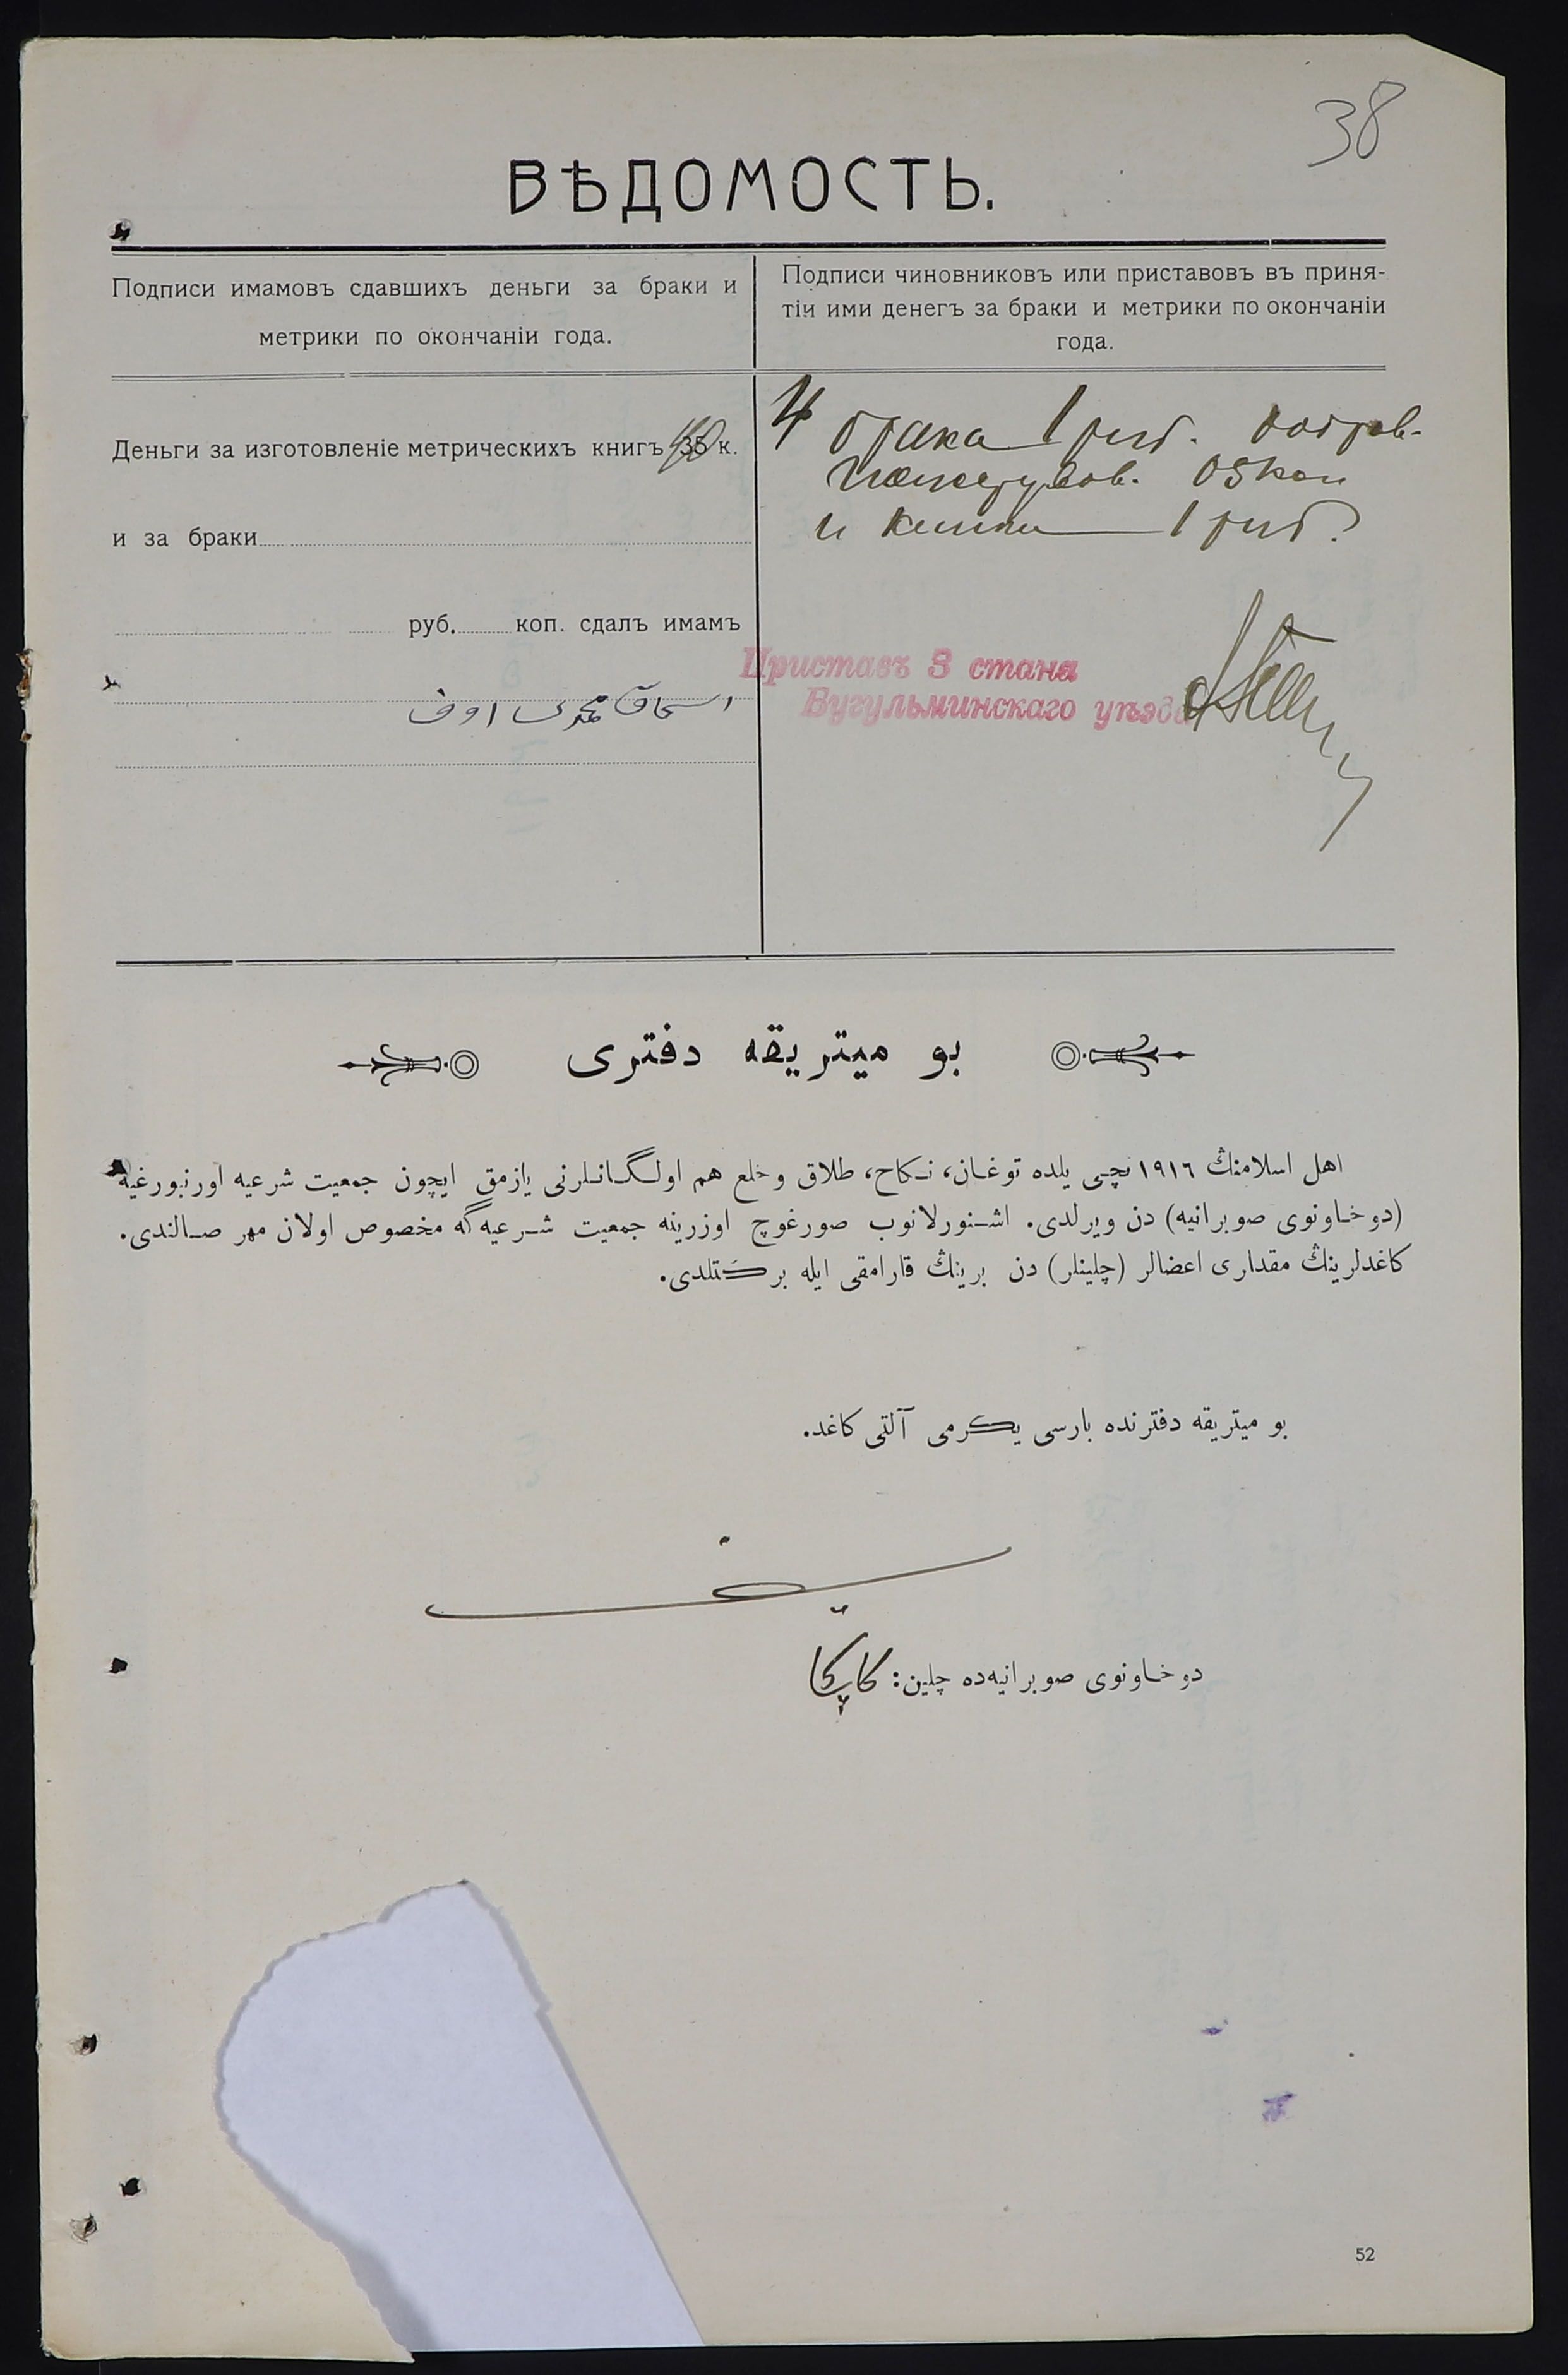 38
ВѢДОМОСТЬ.
Подписи имамовъ сдавшихъ деньги за браки и
метрики по окончаніи года.
Подписи чиновниковъ или приставовъ въ приня-
тіи ими денегъ за браки и метрики по окончаніи
года.
Деньги за изготовленіе метрическихъ книгъ 35 к.
и за браки
руб. коп. сдалъ имамъ
اسحاق محمدى اوف
4 брака 1 руб.
05 коп
и книги 1 руб.
Приставъ 3 стана
Бугульминскаго уѣзда
بو ميتريقه دفترى
اهل اسلامنڭ ١٩١٦ نچى يلده توغان، نكاح، طلاق وخلع هم اولگانلرنى يازمق ايچون جمعيت شرعيه اورنبورغيه
(دوخاونوى صوبرانيه) دن ويرلدى. اشنورلانوب صورغوچ اوزرينه جمعيت شرعيه گه مخصوص اولان مهر صالندى.
كاغدلرينڭ مقدارى اعضالر (چلينلر) دن برينڭ قارامقى ايله بركتلدى.
بو ميتريقه دفترنده بارسى يكرمى آلتى كاغد.
دوخاونوى صوبرانيه‌ده چلين:
52